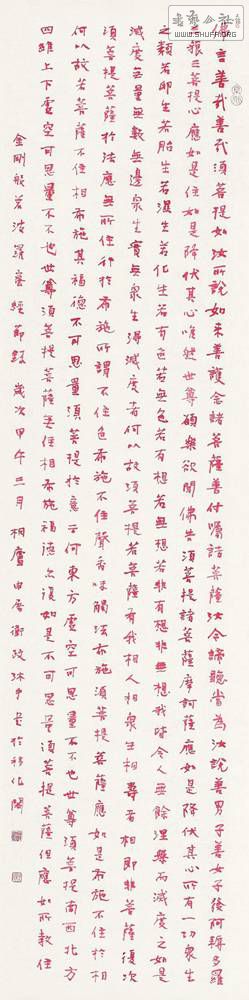 书艺公社
WWW.SHUFA.ORG
佛言善哉善哉須菩提如汝所說如來善護念諸菩薩善付囑諸菩薩汝今諦聽當為汝說善男子善女子後阿耨多羅
三藐三菩提心應如是住如是降伏其心唯然世尊願樂欲聞佛告須菩提諸菩薩摩訶薩應如是降伏其心所有一切衆生
之類若卵生若胎生若濕生若化生若有色若無色若有想若無想若非有想非無想我皆令入無餘涅槃而滅度之如是
滅度無量無數無邊衆生實無衆生得滅度者何以故須菩提若菩薩有我相人相衆生相壽者相即非菩薩復次
須菩提菩薩於法應無所住行於布施所謂不住色布施不住聲香味觸法布施須菩提菩薩應如是布施不住於相
何以故若菩薩不住相布施其福德不可思量須菩提於意云何東方虛空可思量不不也世尊須菩提南西北方
四維上下虛空可思量不不也世尊須菩提菩薩無住相布施福德亦復如是不可思量須菩提菩薩但應如所教住
金剛般若波羅蜜經節錄 歲次甲午三月 桐廬申屠衛政沐手書於閣